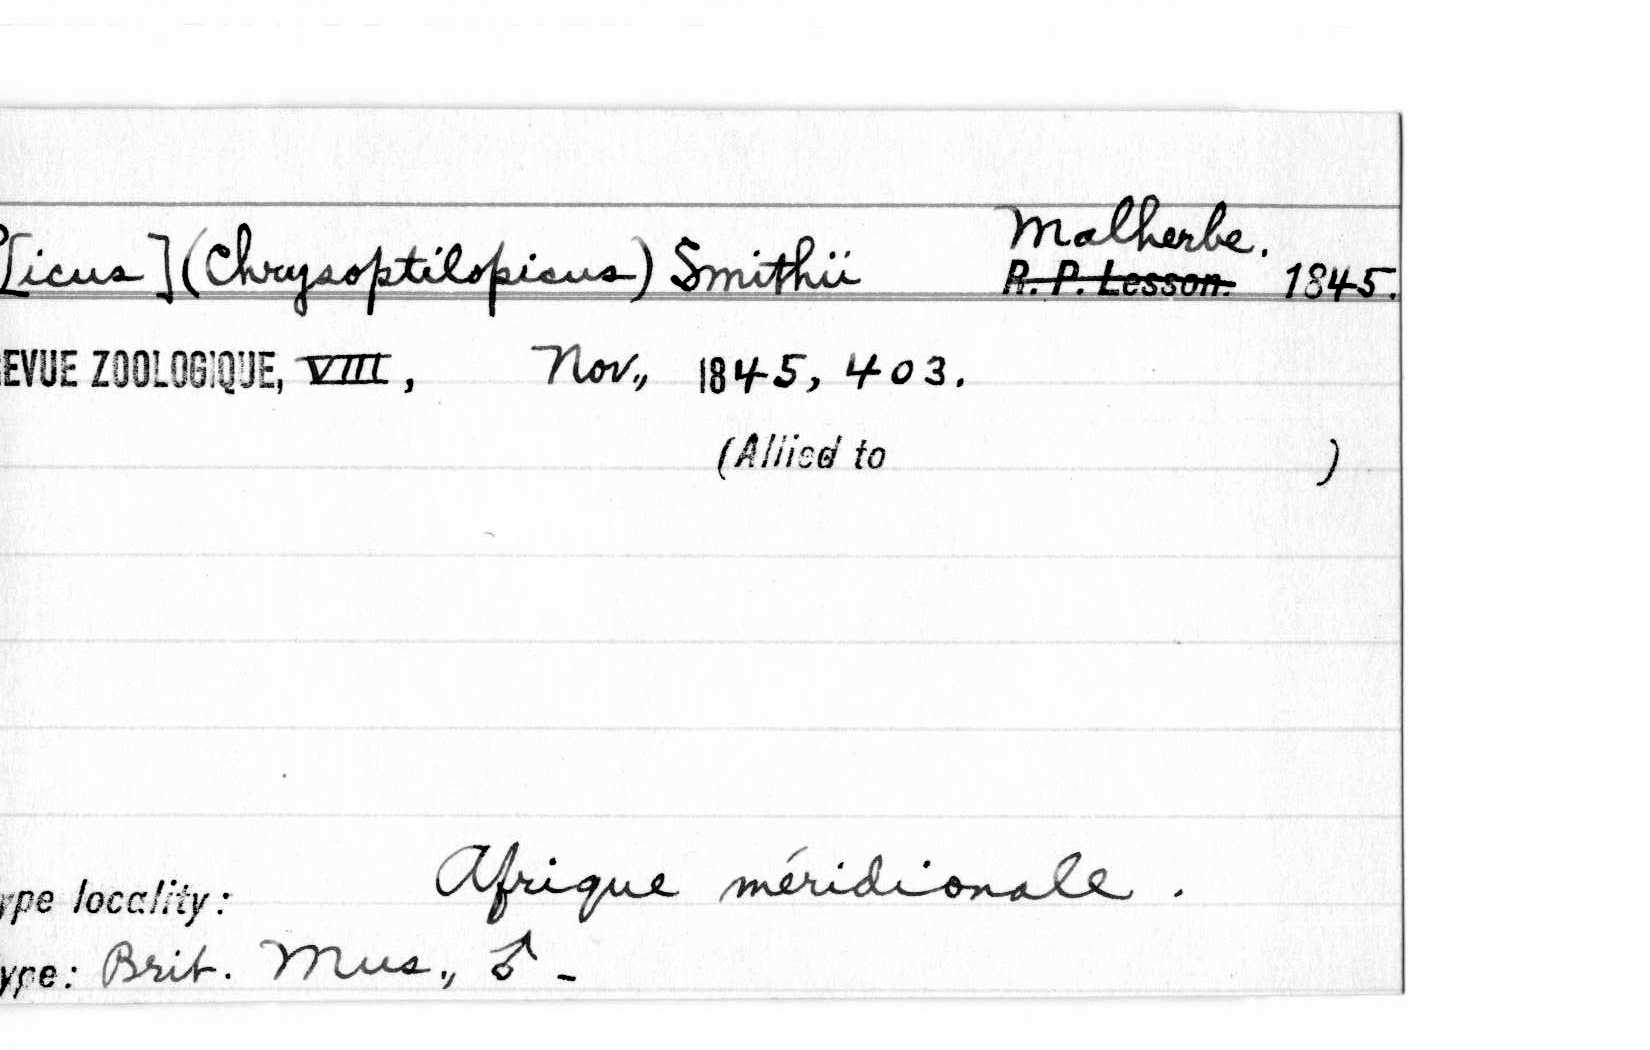 P[icus] (Chrysoptilopicus) Smithii Malherbe. R. P. Lesson. 1845.
REVUE ZOOLOGIQUE, VIII, Nov., 1845, 403.
(Allied to )
ype locality: Afrique méridionale.
ype: Brit. Mus., ♂ -